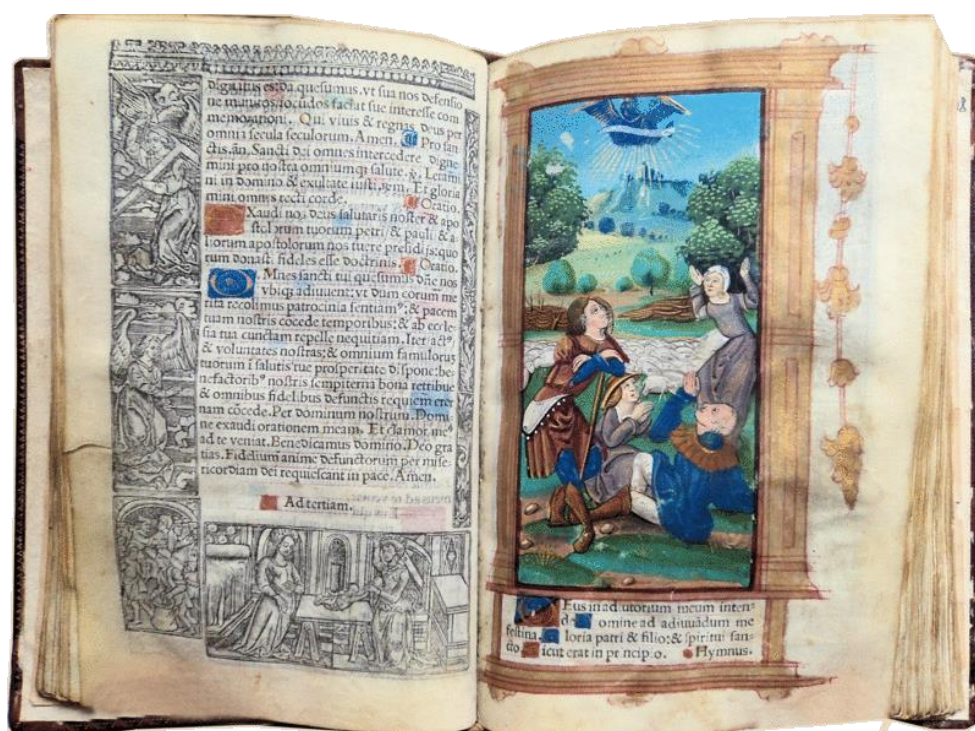 dignatus es: da quesumus. vt sua nos defensio
ne munitos, iocūdos faciat sue interesse com
memorationi. Qui viuis & regnas deus per
omnia secula seculorum. Amen. Pro san
ctis. añ. Sancti dei omnes intercedere digne
mini pro nostra omniumq; salute. Letami
ni in domino & exultate iusti. Et gloria
mini omnes recti corde. Oratio.
Xaudi nos deus salutaris noster & apo
stolorum tuorum petri & pauli & a
liorum apostolorum nos tuere presidijs: quo
rum donasti fideles esse doctrinis. Oratio.
Mnes sancti tui quesumus dñe nos
vbiq; adiuuent: vt dum eorum me
rita recolimus patrocinia sentiam⁹: & pacem
tuam nostris cōcede temporibus: & ab eccle-
sia tua cunctam repelle nequitiam. Iter act⁹
& voluntates nostras: & omnium famulorū
tuorum ī salutis tue prosperitate dispone: be
nefactorib⁹ nostris sempiterna bona retribue
& omnibus fidelibus defunctis requiem eter
nam cōcede. Per dominum nostrum. Domi-
ne exaudi orationem meam. Et clamor me⁹
ad te veniat. Benedicamus domino. Deo gra
tias. Fidelium anime defunctorum per mise-
ricordiam dei requiescant in pace. Amen.
Ad tertiam.
Eus in adiutorium meum inten-
de omine ad adiuuādum me
festina. loria patri & filio: & spiritui san-
cto icut erat in principio. Hymnus.